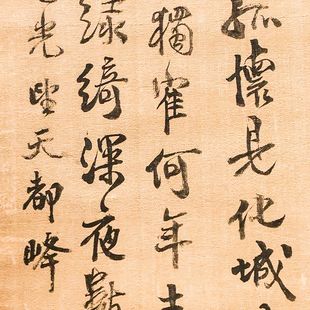 懷見化城
獨霍何年
綠綺深夜
光坐天都峰